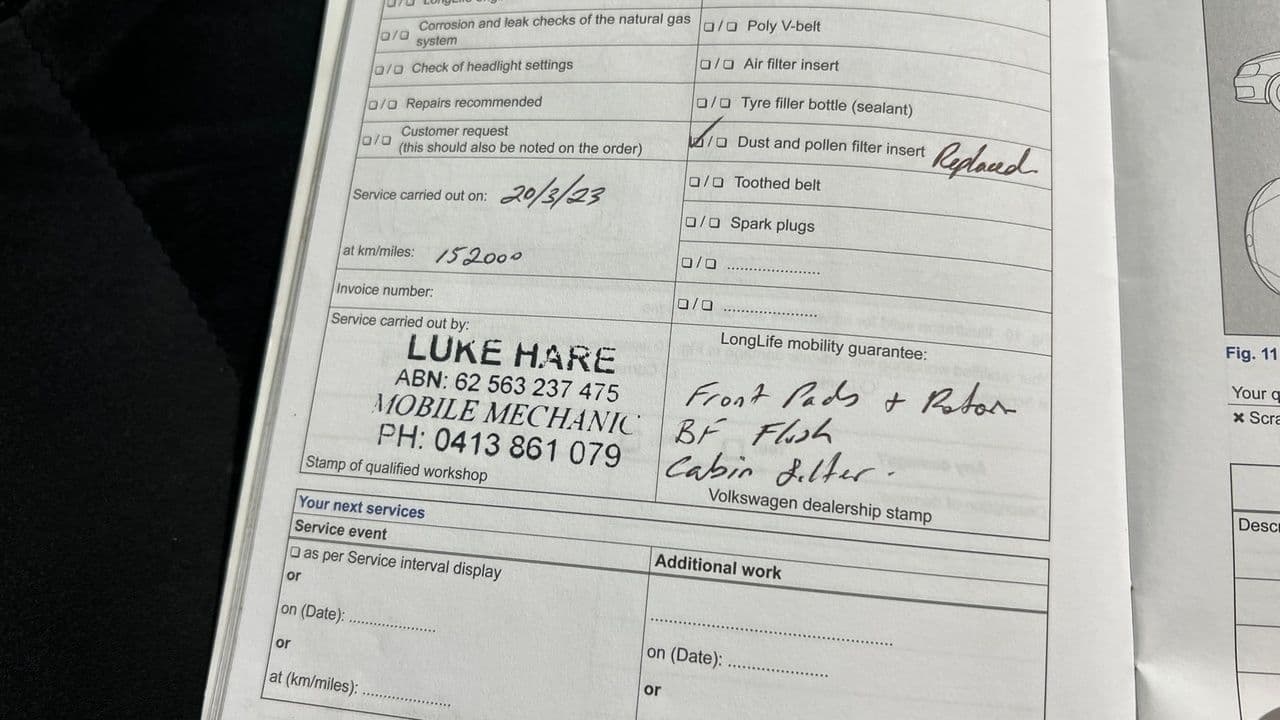 Corrosion and leak checks of the natural gas
system
❏/❏ Check of headlight settings
❏/❏ Repairs recommended
❏/❏ Customer request
(this should also be noted on the order)
Service carried out on: 20/3/23
at km/miles: 152000
Invoice number:
Service carried out by:
LUKE HARE
ABN: 62 563 237 475
MOBILE MECHANIC
PH: 0413 861 079
Stamp of qualified workshop
❏/❏ Poly V-belt
❏/❏ Air filter insert
❏/❏ Tyre filler bottle (sealant)
☑/❏ Dust and pollen filter insert Replaced
❏/❏ Toothed belt
❏/❏ Spark plugs
❏/❏ ......................
❏/❏ ......................
LongLife mobility guarantee:
Front Pads + Rotors
BF Flush
Cabin filter.
Volkswagen dealership stamp
Your next services
Service event
❏ as per Service interval display
or
on (Date): ....................
or
at (km/miles): ....................
Additional work
..................................................
on (Date): .......................
or
Fig. 11
Your
✖ Scra
Descr